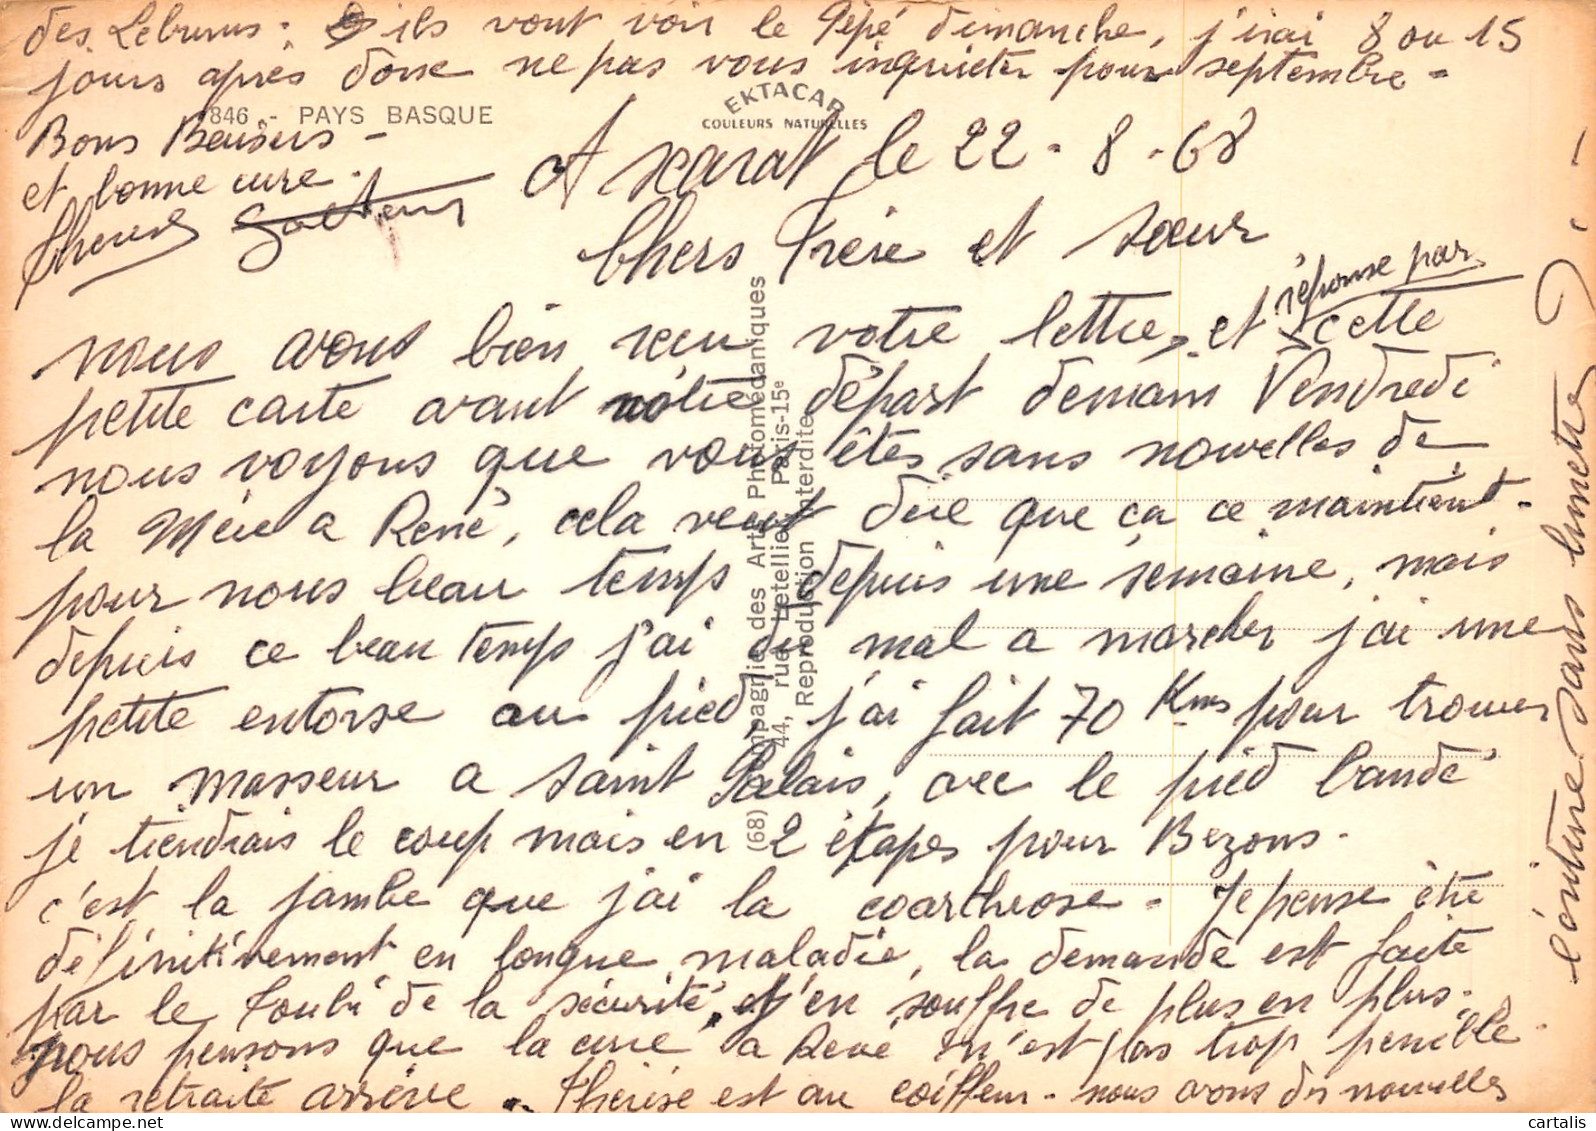 des Lebruns. ils vont voir le Pépé dimanche, j'irai 8 ou 15
jours après donc ne pas vous inquiéter pour septembre -
846 - PAYS BASQUE
EKTACAR
COULEURS NATURELLES
Bons Baisers -
et bonne cure.
Gaëtan
Ascarat le 22 - 8 - 68
Chers Frère et soeur
nous avons bien reçu votre lettre, et réponse par cette
petite carte avant notre départ demain Vendredi
nous voyons que vous êtes sans nouvelles de
la Mère a René, cela veut dire que ça ce maintient -
pour nous beau temps depuis une semaine, mais
depuis ce beau temps j'ai du mal a marcher j'ai une
petite entorse au pied, j'ai fait 70 Kms pour trouver
un masseur a Saint Palais, avec le pied bandé
je tiendrais le coup mais en 2 étapes pour Bezons -
c'est la jambe que j'ai la coarthrose - Je pense être
définitivement en longue maladie, la demande est faite
par le Toubi de la sécurité, j'en souffre de plus en plus -
nous pensons que la cure a René n'est pas trop penible -
la retraite arrive. Thérèse est au coiffeur - nous avons des nouvelles
l'écriture sans lunette
(68) Compagnie des Arts Photomécaniques
44, rue Letellier Paris-15e
Reproduction interdite